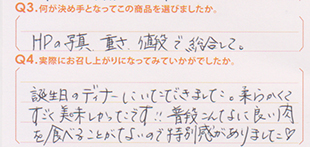 Q3.何が決め手となってこの商品を選びましたか。
HPの写真、重さ、値段で総合して。
Q4.実際にお召し上がりになってみていかがでしたか。
誕生日のディナーにいただきました。柔らかくて
すごく美味しかったです!!普段こんなに良い肉
を食べることがないので特別感がありました♡